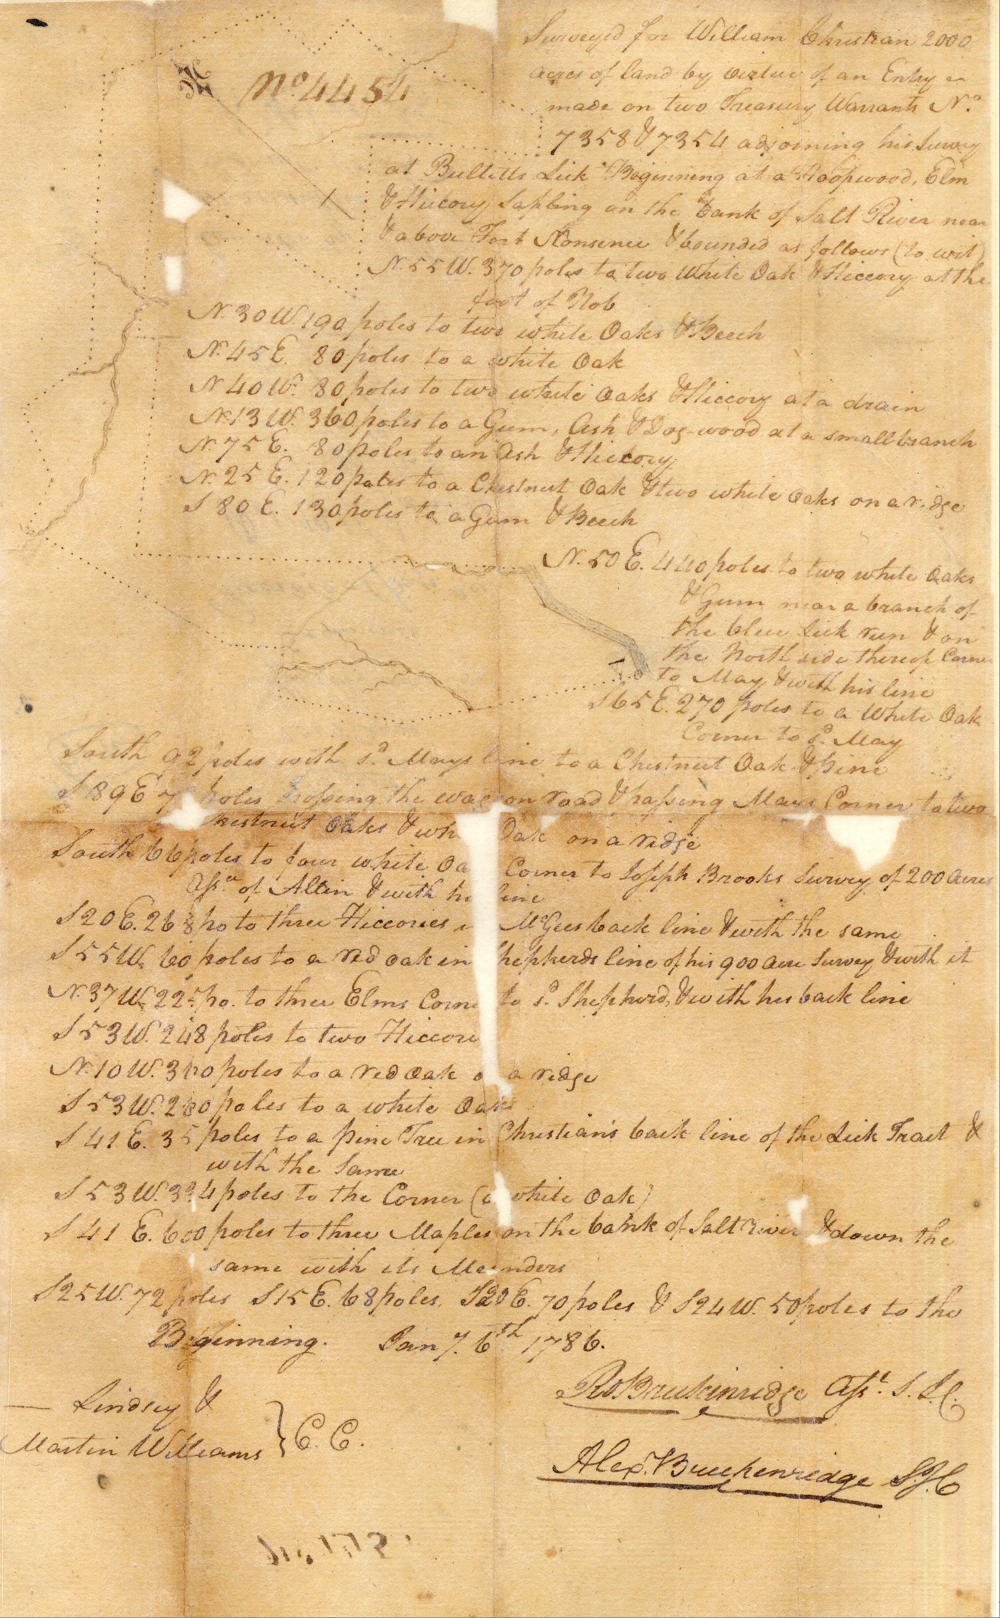 No 4454
Surveyed for William Christian 2000
acres of land by virtue of an Entry
made on two Treasury Warrants No.
7358 & 7354 adjoining his Survey
at Bullitts Lick Beginning at a Hoopwood, Elm
& Hiccory Sapling on the bank of Salt River near
& above Fort Nonsence & bounded as follows (to wit)
N.55W. 370 poles to two White Oak & Hiccory at the
foot of Nob
N.30W. 190 poles to two white Oaks & Beech
N.45E. 80 poles to a white Oak
N40W. 80 poles to two white Oaks & Hiccory at a drain
N.13W. 360 poles to a Gum, Ash & Dog-wood at a small branch
N.75E. 80 poles to an Ash & Hiccory
N.25E. 120 poles to a Chestnut Oak & two white Oaks on a ridge
S80E. 130 poles to a Gum & Beech
N.50E. 440 poles to two white Oaks
& Gum near a branch of
the blue Lick run & on
the North side thereof Corner
to May & with his line
S65E. 270 poles to a White Oak
Corner to sd. May
South 92 poles with sd. Mays line to a Chestnut Oak & Pine
S89E poles crossing the waggon road & passing Mays Corner to two
Chestnut Oaks & wh Oak on a ridge
South 66 poles to four white Oa Corner to Joseph Brooks Survey of 200 acres
Assee. of Allin & with hi line
S20E. 268 po to three Hiccories McGees back line & with the same
S55W. 60 poles to a red oak in Shepherds line of his 900 acre Survey & with it
N.37W. 225 po. to three Elms Corner to sd. Shepherd, & with his back line
S53W. 248 poles to two Hiccori
N.10W. 310 poles to a red Oak on a ridge
S53W. 280 poles to a white Oak
S41E. 35 poles to a Pine Tree in Christian's back line of the Lick Tract &
with the Same
S53W. 394 poles to the Corner (a white Oak)
S41E. 600 poles to three Maples on the bank of Salt River & down the
same with its Meanders
S25W. 72 poles S15E. 68 poles, S20E. 70 poles & S24W. 50 poles to the
Beginning. Jany. 6th 1786.
Ro. Breckinridge Asst. S.J.C.
Lindsey &
Martin Williams } C.C.
Alexr. Breckenridge S.J.C